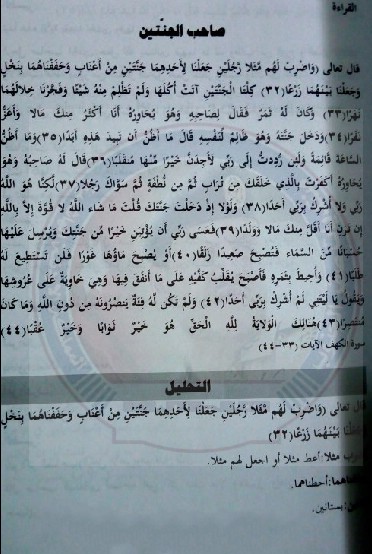 القراءة
صاحب الجنّتين
قال تعالى (وَاضْرِبْ لَهُم مَّثَلًا رَّجُلَيْنِ جَعَلْنَا لِأَحَدِهِمَا جَنَّتَيْنِ مِنْ أَعْنَابٍ وَحَفَفْنَاهُمَا بِنَخْلٍ
وَجَعَلْنَا بَيْنَهُمَا زَرْعًا(٣٢) كِلْتَا الْجَنَّتَيْنِ آتَتْ أُكُلَهَا وَلَمْ تَظْلِم مِنْهُ شَيْئًا وَفَجَّرْنَا خِلَالَهُمَا
نَهَرًا(٣٣) وَكَانَ لَهُ ثَمَرٌ فَقَالَ لِصَاحِبِهِ وَهُوَ يُحَاوِرُهُ أَنَا أَكْثَرُ مِنكَ مَالًا وَأَعَزُّ
نَفَرًا(٣٤) وَدَخَلَ جَنَّتَهُ وَهُوَ ظَالِمٌ لِّنَفْسِهِ قَالَ مَا أَظُنُّ أَن تَبِيدَ هَذِهِ أَبَدًا(٣٥)وَمَا أَظُنُّ
السَّاعَةَ قَائِمَةً وَلَئِن رُّدِدتُّ إِلَى رَبِّي لَأَجِدَنَّ خَيْرًا مِّنْهَا مُنقَلَبًا(٣٦)قَالَ لَهُ صَاحِبُهُ وَهُوَ
يُحَاوِرُهُ أَكَفَرْتَ بِالَّذِي خَلَقَكَ مِن تُرَابٍ ثُمَّ مِن نُّطْفَةٍ ثُمَّ سَوَّاكَ رَجُلًا(٣٧)لَّكِنَّا هُوَ اللَّهُ
رَبِّي وَلَا أُشْرِكُ بِرَبِّي أَحَدًا(٣٨) وَلَوْلَا إِذْ دَخَلْتَ جَنَّتَكَ قُلْتَ مَا شَاءَ اللَّهُ لَا قُوَّةَ إِلَّا بِاللَّهِ
إِن تَرَنِ أَنَا أَقَلَّ مِنكَ مَالًا وَوَلَدًا(٣٩)فَعَسَى رَبِّي أَن يُؤْتِيَنِ خَيْرًا مِّن جَنَّتِكَ وَيُرْسِلَ عَلَيْهَا
حُسْبَانًا مِّنَ السَّمَاءِ فَتُصْبِحَ صَعِيدًا زَلَقًا(٤٠) أَوْ يُصْبِحَ مَاؤُهَا غَوْرًا فَلَن تَسْتَطِيعَ لَهُ
طَلَبًا(٤١) وَأُحِيطَ بِثَمَرِهِ فَأَصْبَحَ يُقَلِّبُ كَفَّيْهِ عَلَى مَا أَنفَقَ فِيهَا وَهِيَ خَاوِيَةٌ عَلَى عُرُوشِهَا
وَيَقُولُ يَا لَيْتَنِي لَمْ أُشْرِكْ بِرَبِّي أَحَدًا(٤٢) وَلَمْ تَكُن لَّهُ فِئَةٌ يَنصُرُونَهُ مِن دُونِ اللَّهِ وَمَا كَانَ
مُنتَصِرًا(٤٣)هُنَالِكَ الْوَلَايَةُ لِلَّهِ الْحَقِّ هُوَ خَيْرٌ ثَوَابًا وَخَيْرٌ عُقْبًا(٤٤)
سورة الكهف الآيات (٣٣-٤٤)
التحليل
قال تعالى (وَاضْرِبْ لَهُم مَّثَلًا رَّجُلَيْنِ جَعَلْنَا لِأَحَدِهِمَا جَنَّتَيْنِ مِنْ أَعْنَابٍ وَحَفَفْنَاهُمَا بِنَخْلٍ
بَيْنَهُمَا زَرْعًا(٣٢)
مثلا:أعط مثلا أو اجعل لهم مثلا.
أحطناهما.
بستانين.